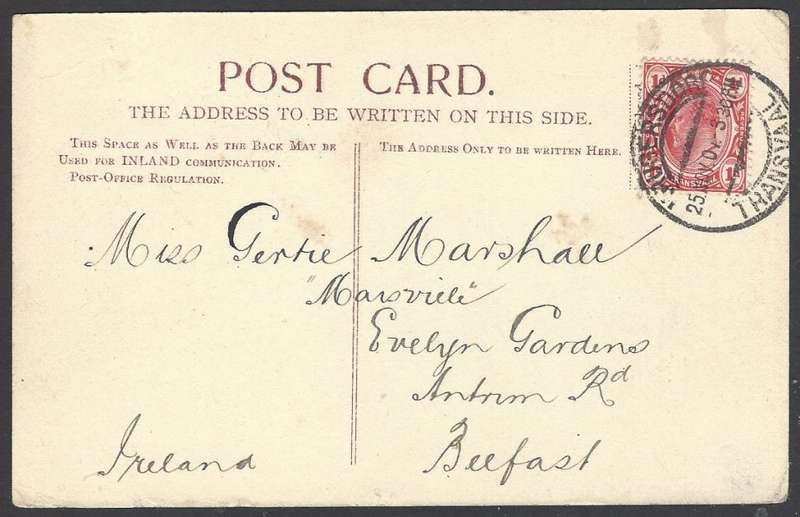 POST CARD.
THE ADDRESS TO BE WRITTEN ON THIS SIDE.
THIS SPACE AS WELL AS THE BACK MAY BE
USED FOR INLAND COMMUNICATION.
POST-OFFICE REGULATION.
THE ADDRESS ONLY TO BE WRITTEN HERE.
1d 1d
TRANSVAAL
TRANSVAAL
25
Miss Gertie Marshall
"Marsville"
Evelyn Gardens
Antrim Rd
Belfast
Ireland